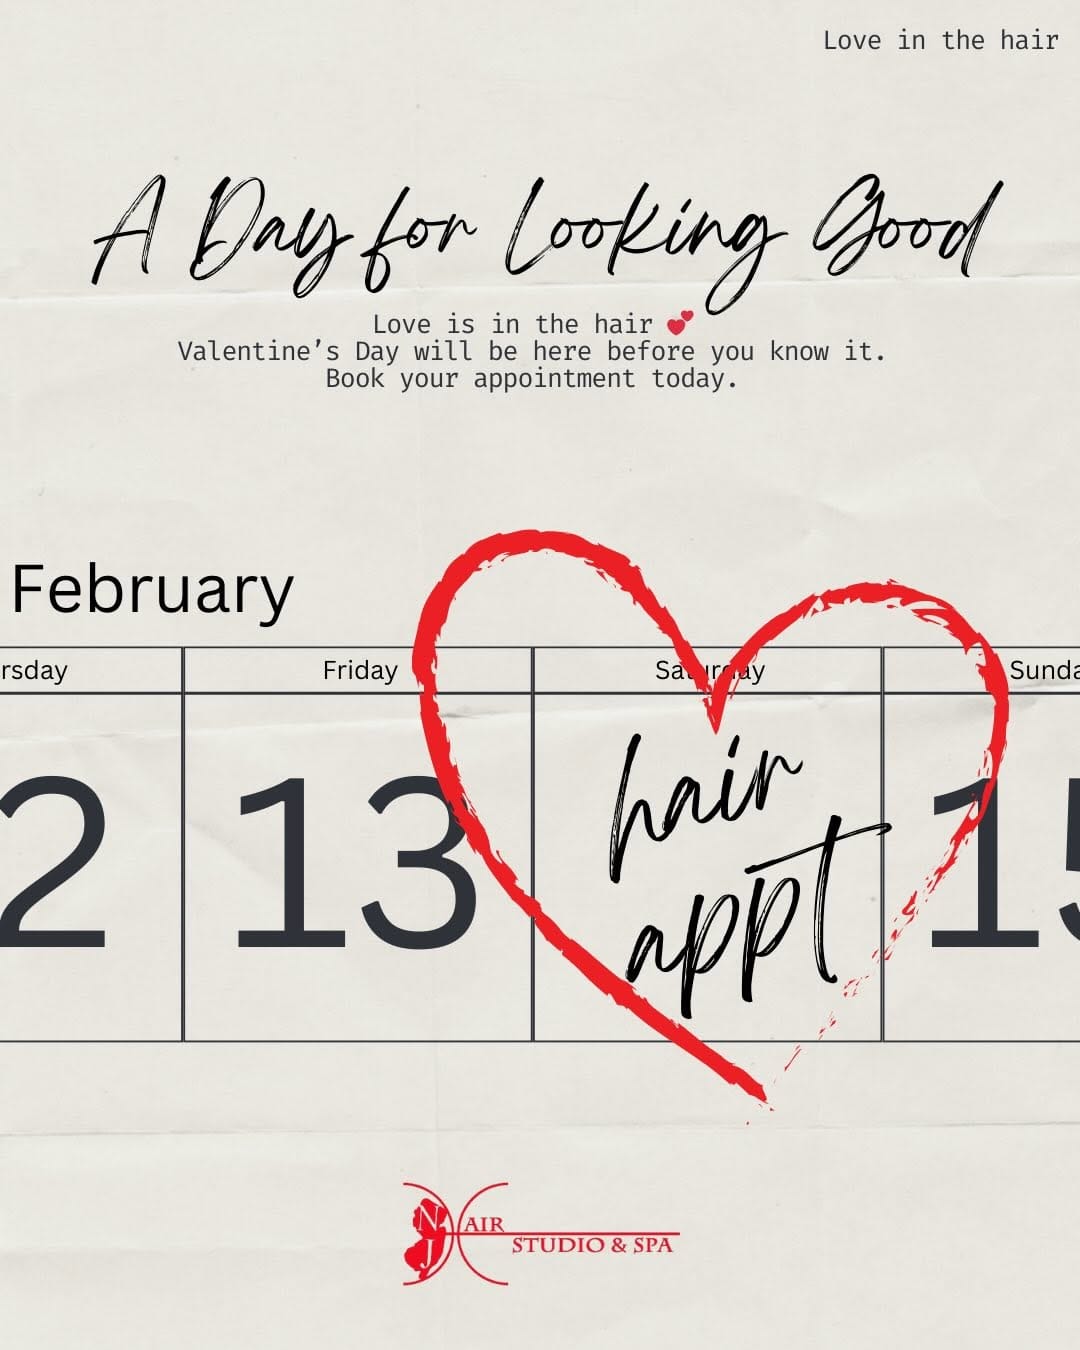 Love in the hair
A Day for Looking Good
Love is in the hair 💕
Valentine’s Day will be here before you know it.
Book your appointment today.
February
rsday Friday Saturday Sunda
2 13 hair appt 15
NJ HAIR
STUDIO & SPA